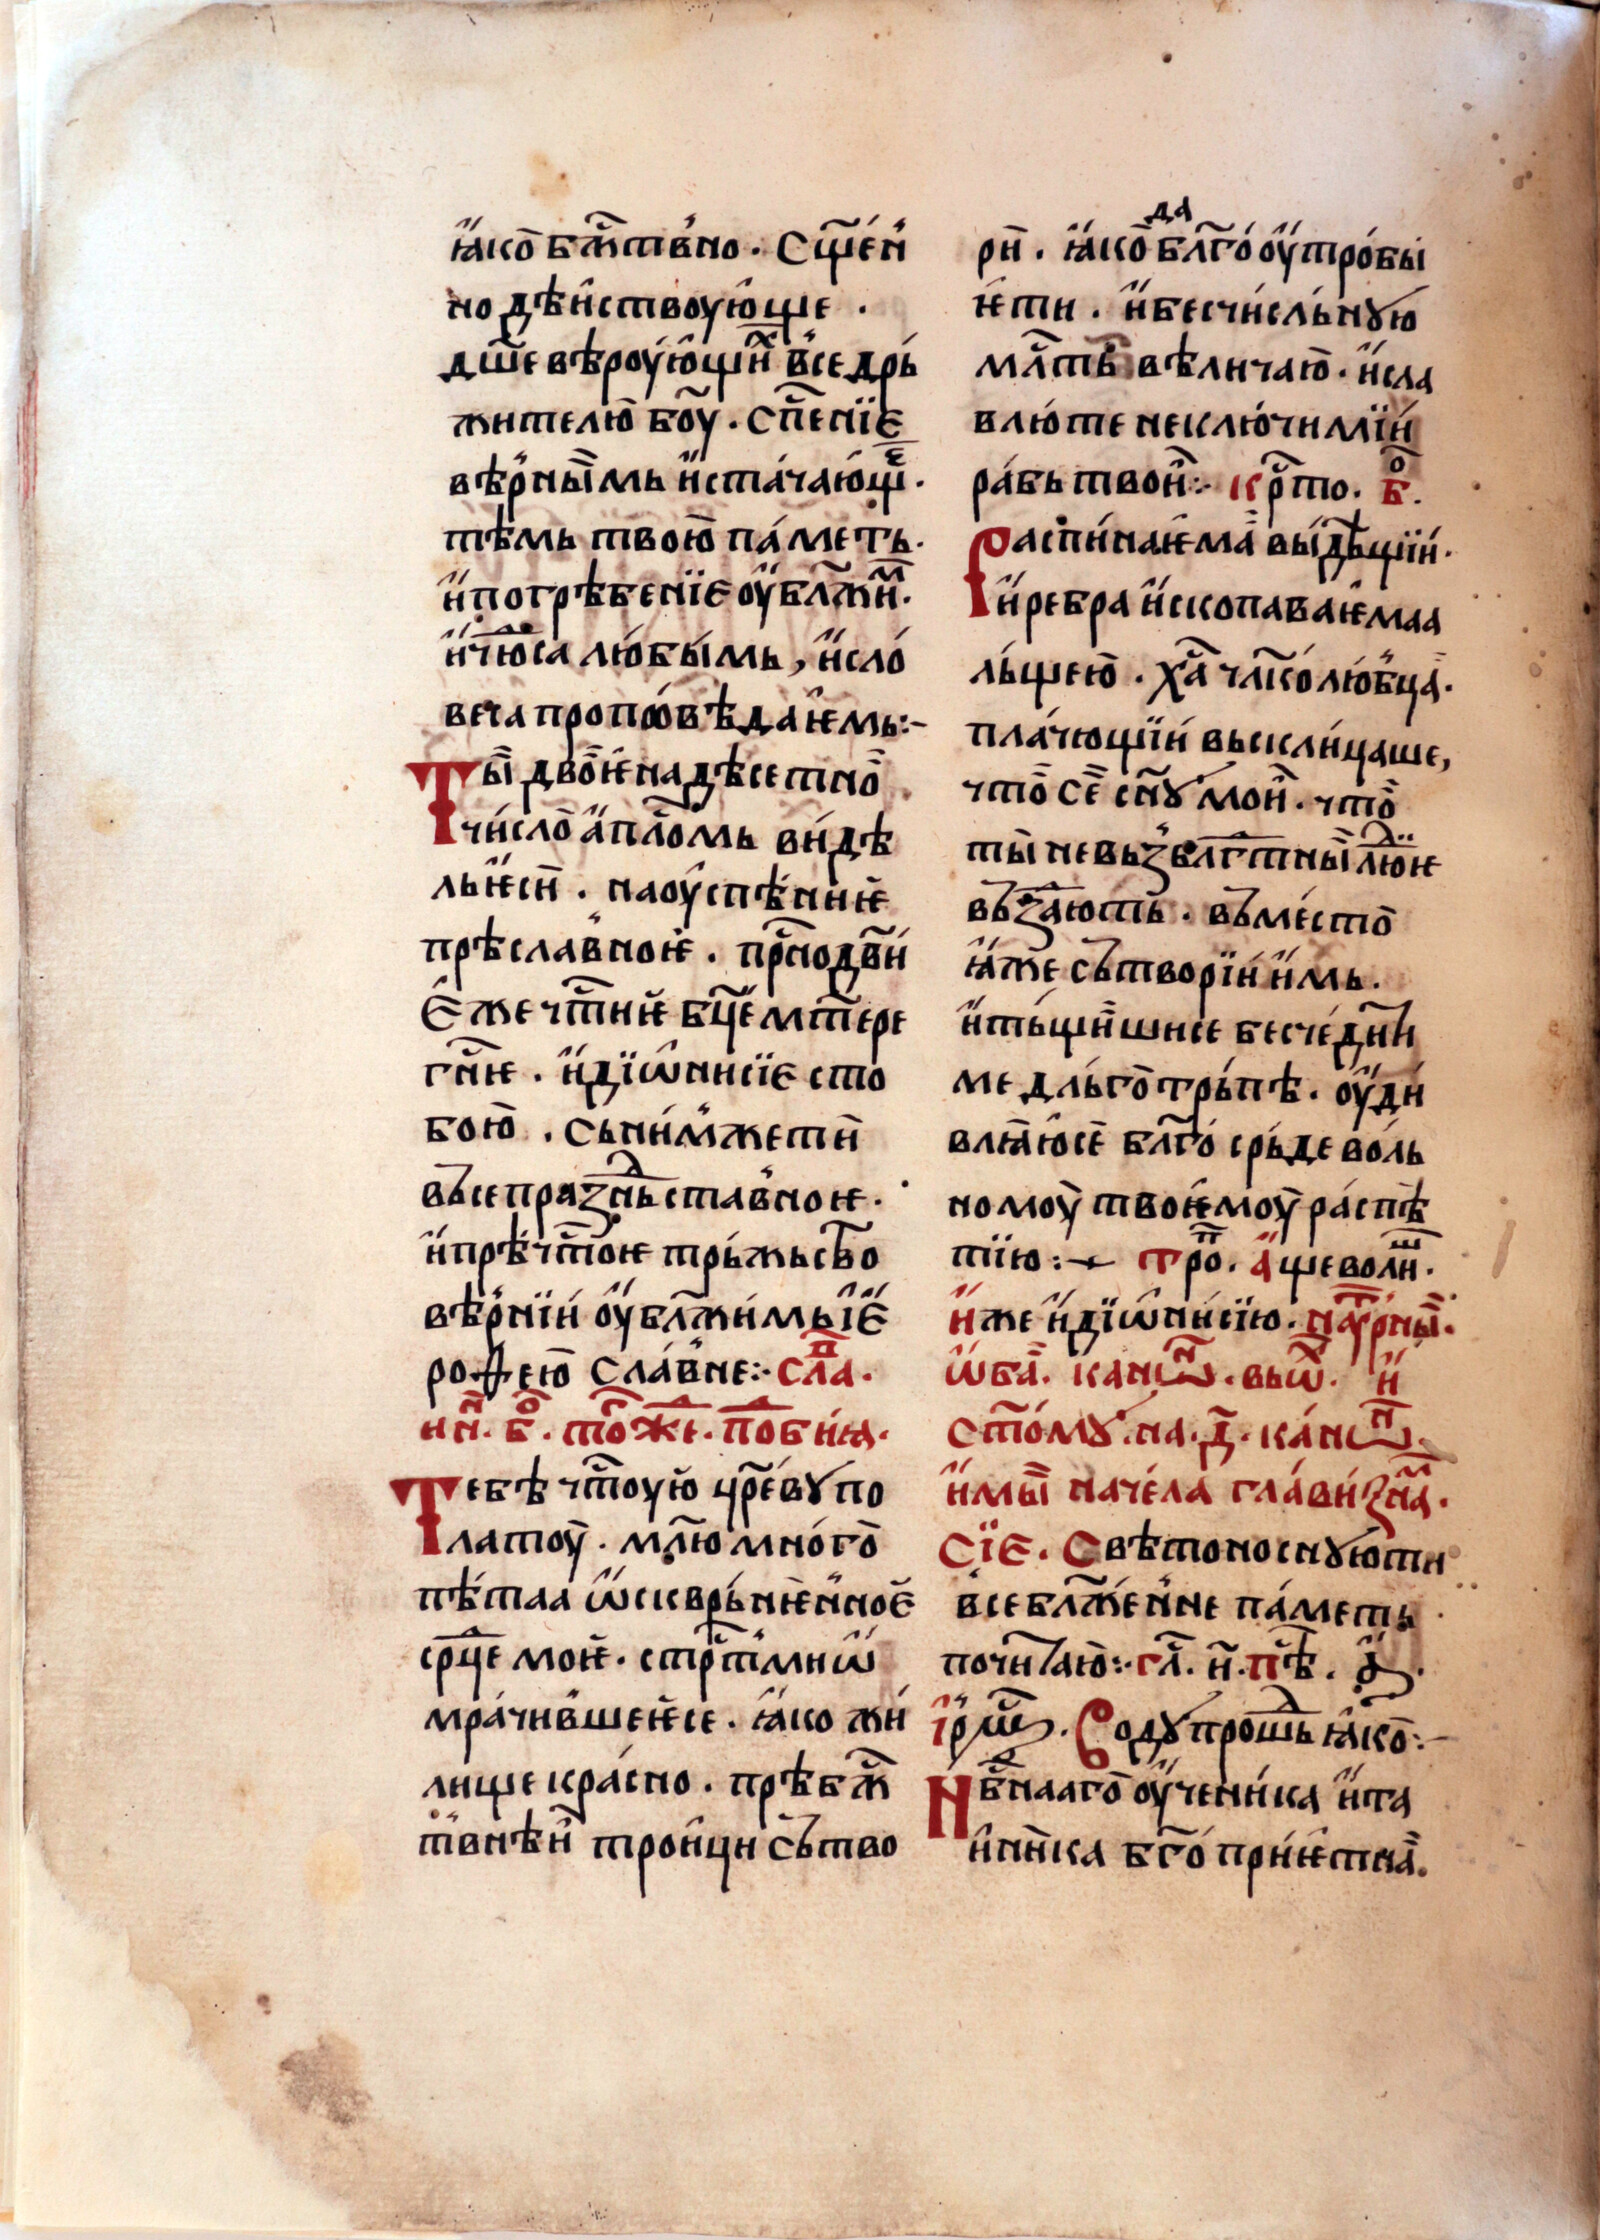 ꙗко бж҃тв'но. Сщ҃ен
но дѣиствоующе.
дш҃е вѣроующи҃х в'се дрь
жителю б҃оу. сп҃сенїе
вѣрны҃мь и стачающе.
тѣмь твою паметь.
и погрѣбенїе оублж҃им.
и ч҃юдеса любымь, и сло
веса пропѡвѣдаѥмь:-
Ты двоѥнадѣсетно
число ап҃лѡмь видѣ
льѥси. на оуспѣниѥ
прѣславноѥ. пр҃снодв҃и
Єже чт҃ниѥ бц҃ем мт҃ере
гн҃ѥ. и дїѡнисїе с то
бою. сь нимжети
въсепразньставноѥ.
и прѣчт҃оѥ трьжьство
вѣрнїи оублж҃имь їЄ
роѳею славне:· сла.
и н҃. б҃о. то҃же. побиꙗ.
Тебѣ чт҃оую цр҃евꙋ по
латоу. мл҃ю много
пѣтаа ѡскврьнѥнноЄ
ср҃це моѥ. стрт҃ми ѡ
мрачившеѥсе. ꙗко жи
лище красно. прѣбж҃
т'внѣи троици сътво
ри. ꙗко да бл҃гооутробы
ѥти. и бесчисльнꙋю
мл҃ть вѣличаю. и сла
влюте неключимїи
рабь твои:· кр҃то. б҃о.
Распинаѥма выдѣщїи.
и ребра ископаваѥмаа
льщею. х҃а чл҃колюбца.
плачющїи выскклицаше,
что се сн҃ꙋ мои. что
ты невьзбл҃гт҃ны людїѥ
възають. въмесьто
ꙗже сътворїи имь.
и тьщишисе бесчедни
ме дльготрьпѣ. оуди
влꙗюсе бл҃госрьде воль
номоу твоѥмоу распѣ
тїю:· тро҃п. аще волиш.
и же и дїѡнисїю. на оутрны.
ѡба. канѡн. вьѡ. и
ст҃омꙋ. на. д҃. канѡн.
имы начела главизна.
Сїе. Свѣтоноснꙋюти
в'се блж҃енне паметь
почитаю:· гл. и҃. пѣ. а҃.
їрмѡс. Водꙋ прошьд ꙗко:-
Нб҃снааго оученика и та
инника бг҃оприѥтна.